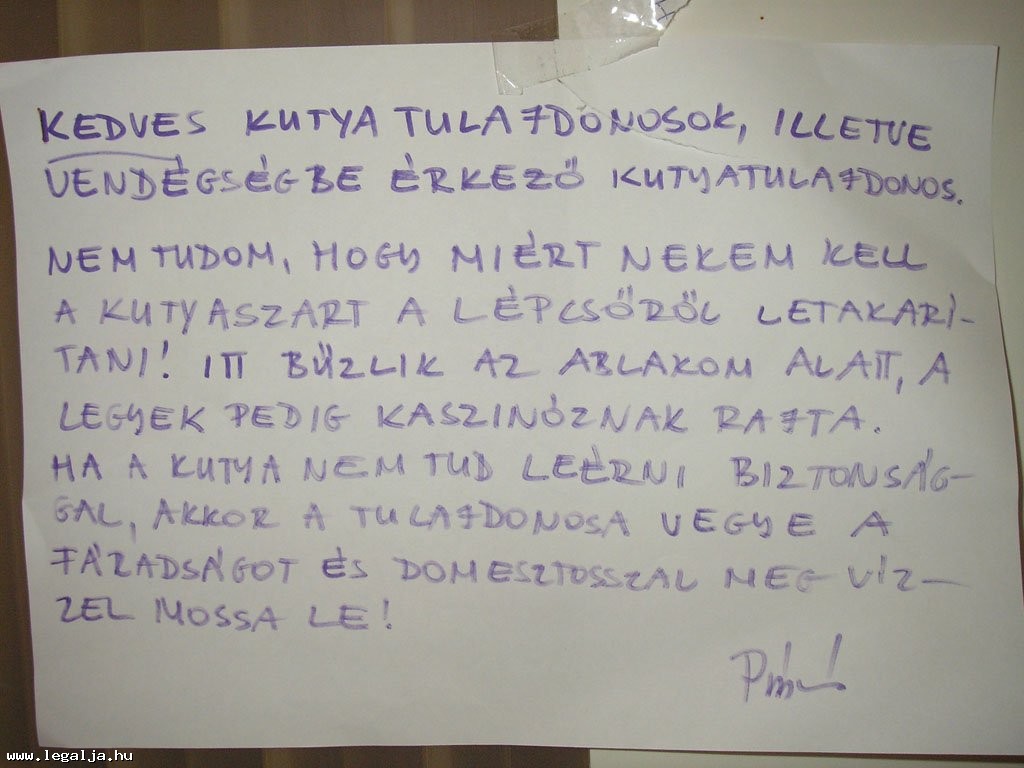 KEDVES KUTYA TULAJDONOSOK, ILLETVE
VENDÉGSÉGBE ÉRKEZŐ KUTYATULAJDONOS.
NEM TUDOM, HOGY MIÉRT NEKEM KELL
A KUTYASZART A LÉPCSŐRŐL LETAKARÍ-
TANI! ITT BŰZLIK AZ ABLAKOM ALATT, A
LEGYEK PEDIG KASZINÓZNAK RAJTA.
HA A KUTYA NEM TUD LEÉRNI BIZTONSÁG-
GAL, AKKOR A TULAJDONOSA VEGYE A
FÁRADSÁGOT ÉS DOMESZTOSSZAL MEG VÍZ-
ZEL MOSSA LE!
www.legalja.hu